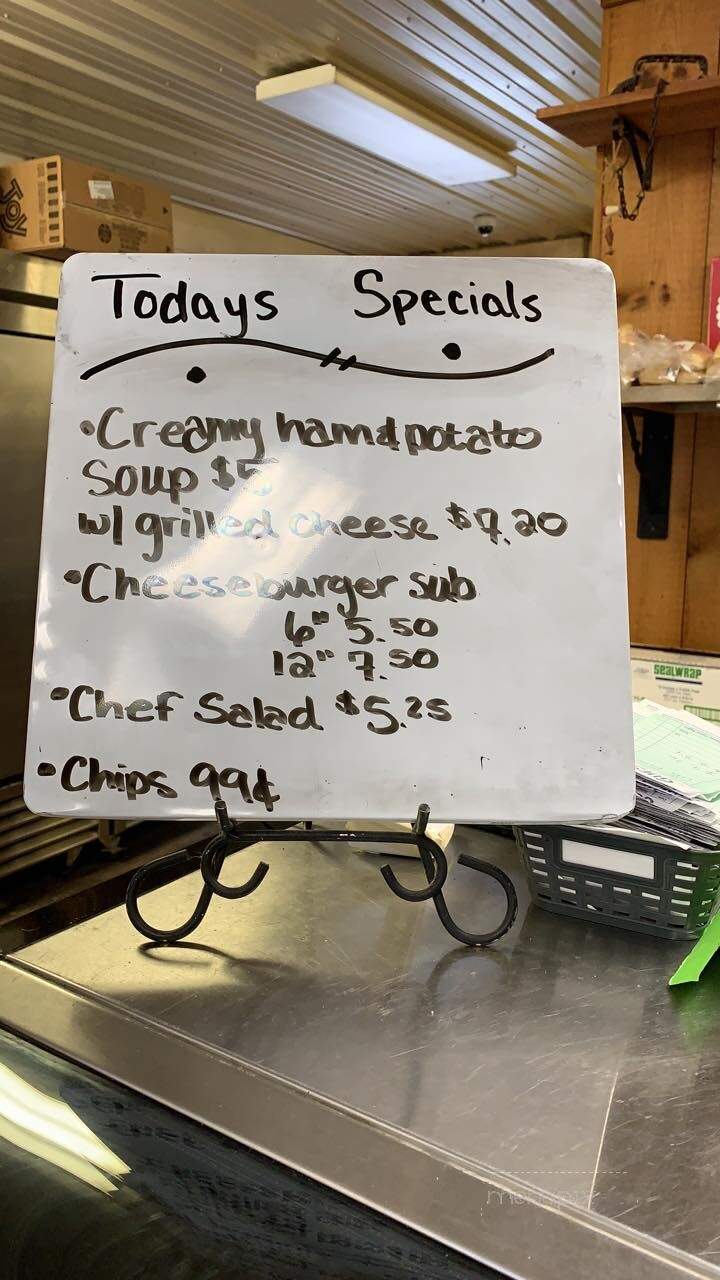 Todays Specials
•Creamy ham & potato
Soup $5
w/ grilled cheese $7.20
•Cheeseburger sub
6" 5.50
12" 7.50
•Chef Salad $5.25
•Chips 99¢
SEALWRAP
JOY